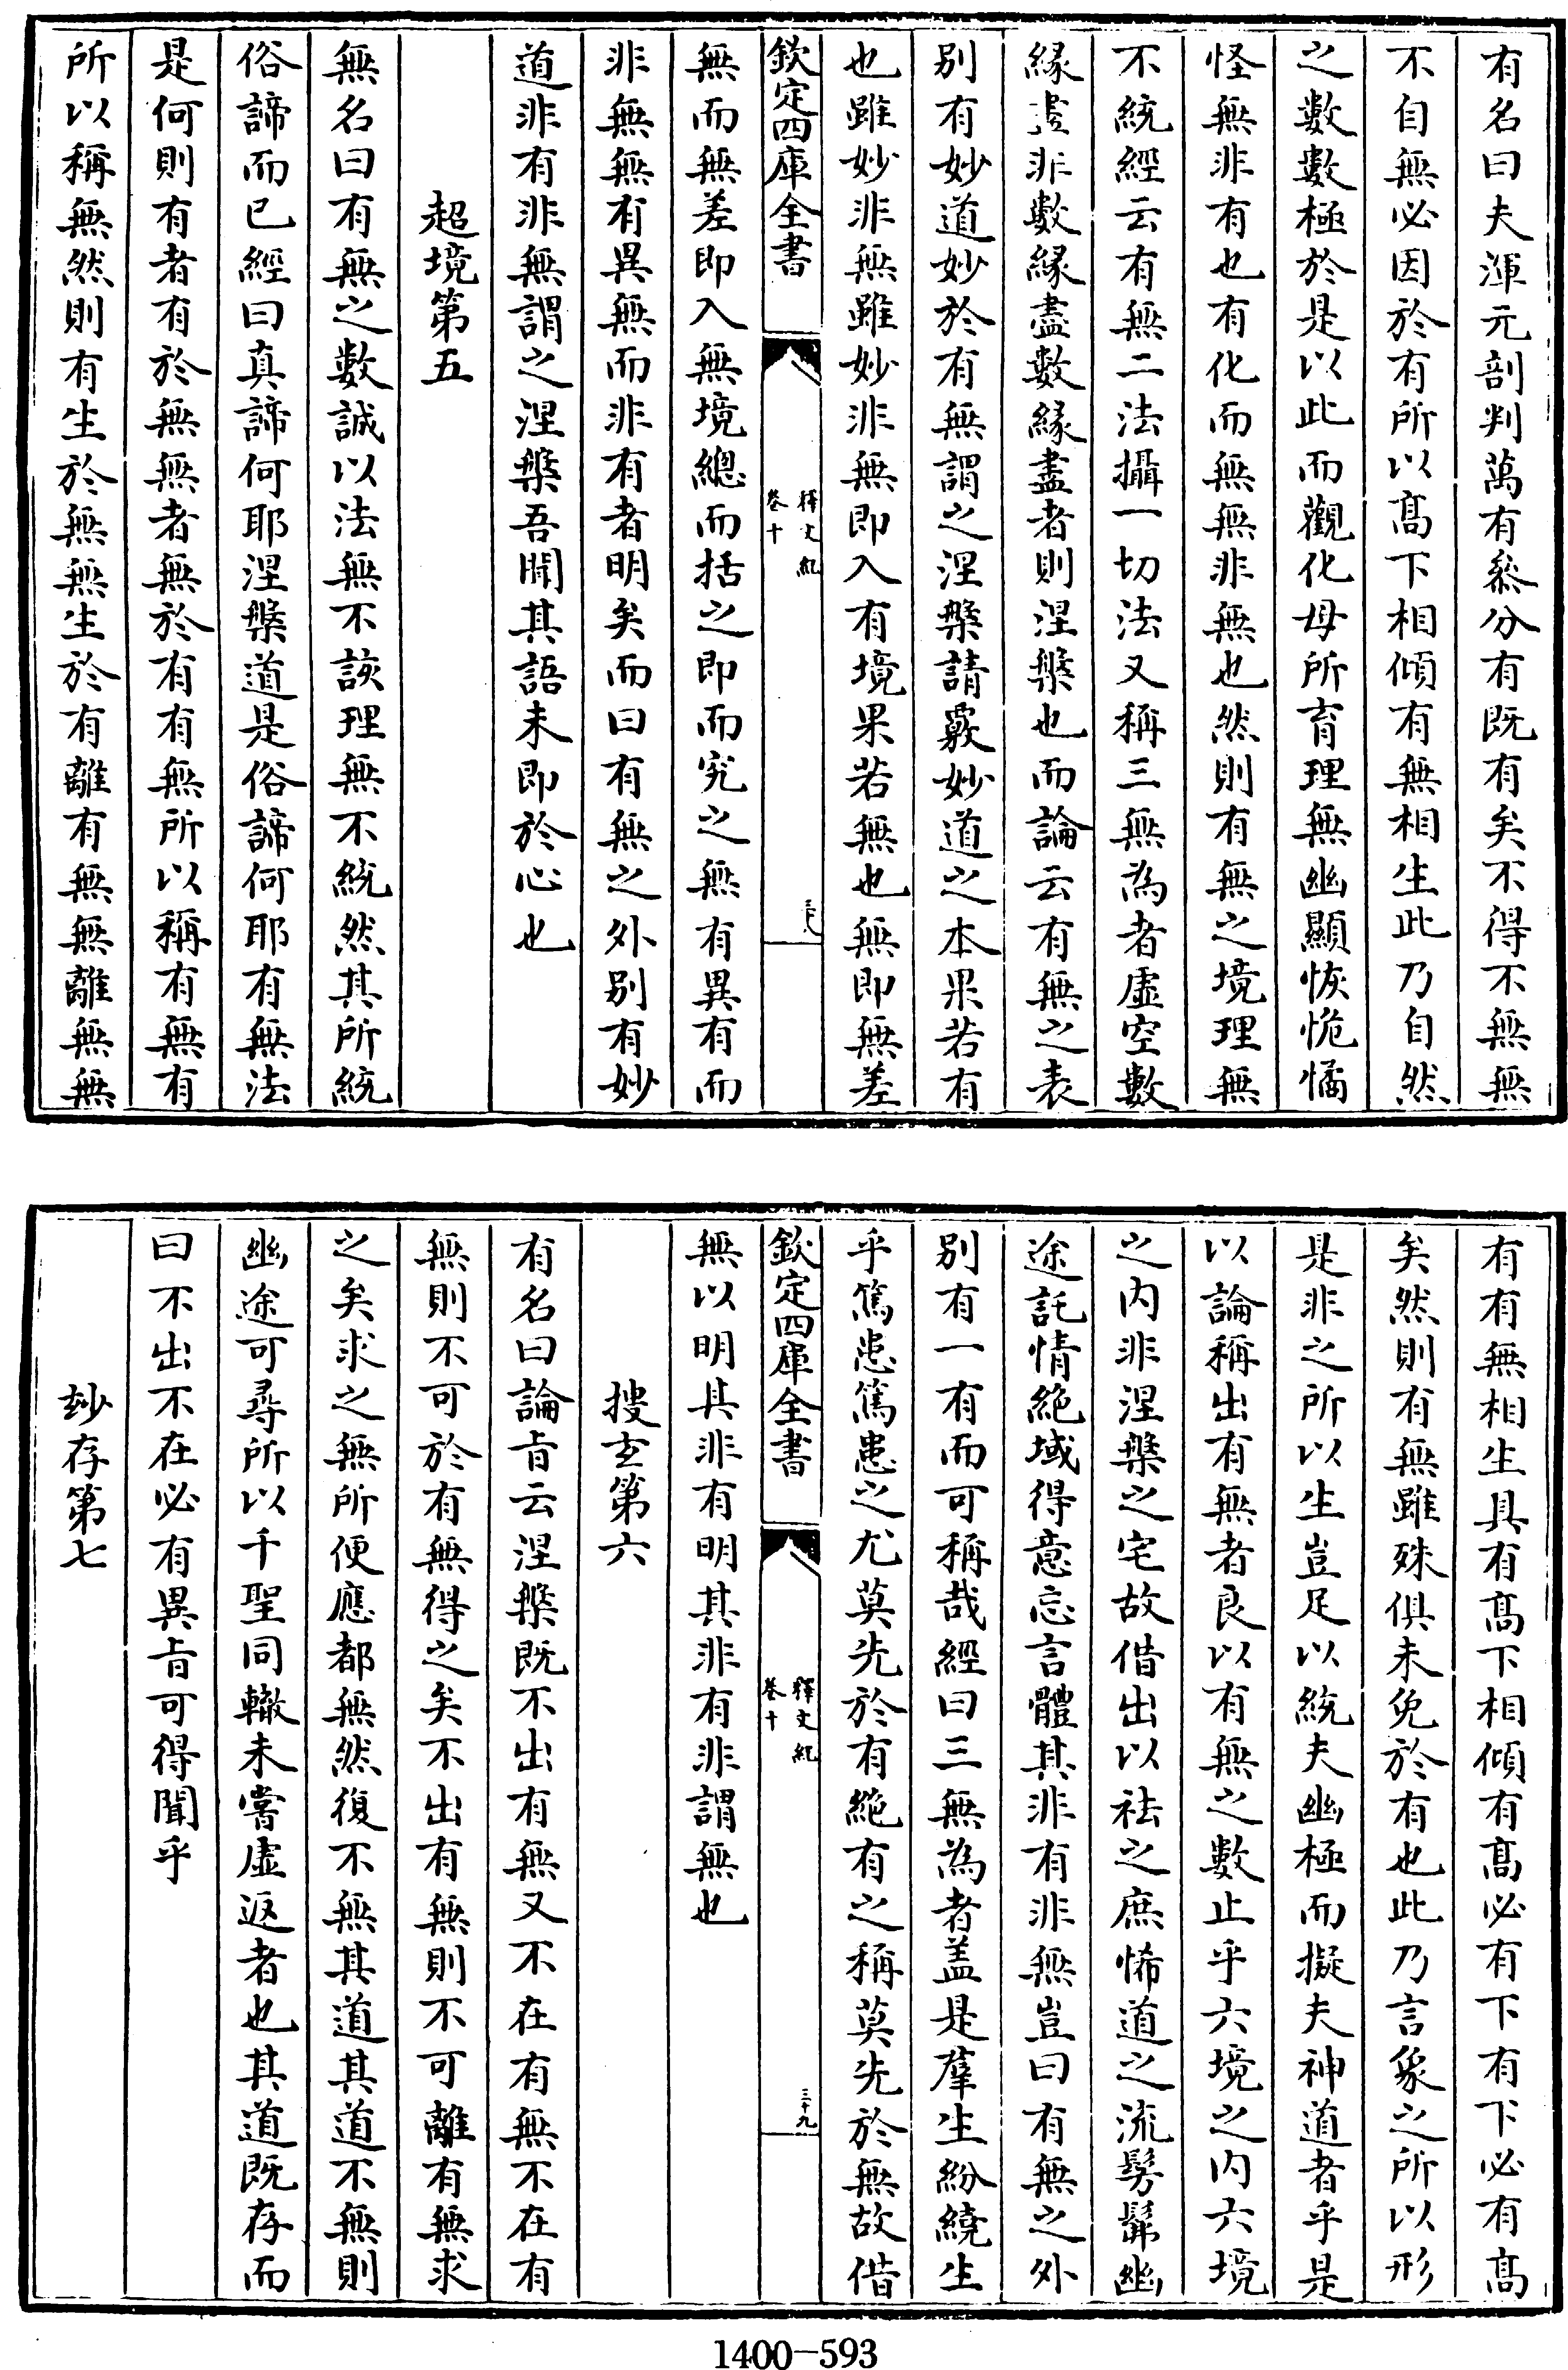 有名曰夫渾元剖判萬有叅分有既有矣不得不無無
不自無必因於有所以髙下相傾有無相生此乃自然
之數數極於是以此而觀化母所育理無幽顯恢恑憰
怪無非有也有化而無無非無也然則有無之境理無
不統經云有無二法攝一切法又稱三無為者虛空數
緣盡非數緣盡數緣盡者則涅槃也而論云有無之表
别有妙道妙於有無謂之涅槃請覈妙道之本果若有
也雖妙非無雖妙非無即入有境果若無也無即無差
欽定四庫全書
釋文紀
卷十
三十八
無而無差即入無境總而括之即而究之無有異有而
非無無有異無而非有者明矣而曰有無之外别有妙
道非有非無謂之涅槃吾聞其語未即於心也
超境第五
無名曰有無之數誠以法無不該理無不統然其所統
俗諦而已經曰真諦何耶涅槃道是俗諦何耶有無法
是何則有者有於無無者無於有有無所以稱有無有
所以稱無然則有生於無無生於有離有無無離無無
有有無相生其有髙下相傾有髙必有下有下必有髙
矣然則有無雖殊俱未免於有也此乃言象之所以形
是非之所以生豈足以統夫幽極而擬夫神道者乎是
以論稱出有無者良以有無之數止乎六境之内六境
之内非涅槃之宅故借出以祛之庶悕道之流髣髴幽
途託情絶域得意忘言體其非有非無豈曰有無之外
别有一有而可稱哉經曰三無為者盖是羣生紛繞生
乎篤患篤患之尤莫先於有絶有之稱莫先於無故借
欽定四庫全書
釋文紀
卷十
三十九
無以明其非有明其非有非謂無也
搜𤣥第六
有名曰論㫖云涅槃既不出有無又不在有無不在有
無則不可於有無得之矣不出有無則不可離有無求
之矣求之無所便應都無然復不無其道其道不無則
幽途可尋所以千聖同轍未嘗虛返者也其道既存而
曰不出不在必有異㫖可得聞乎
玅存第七
1400-593